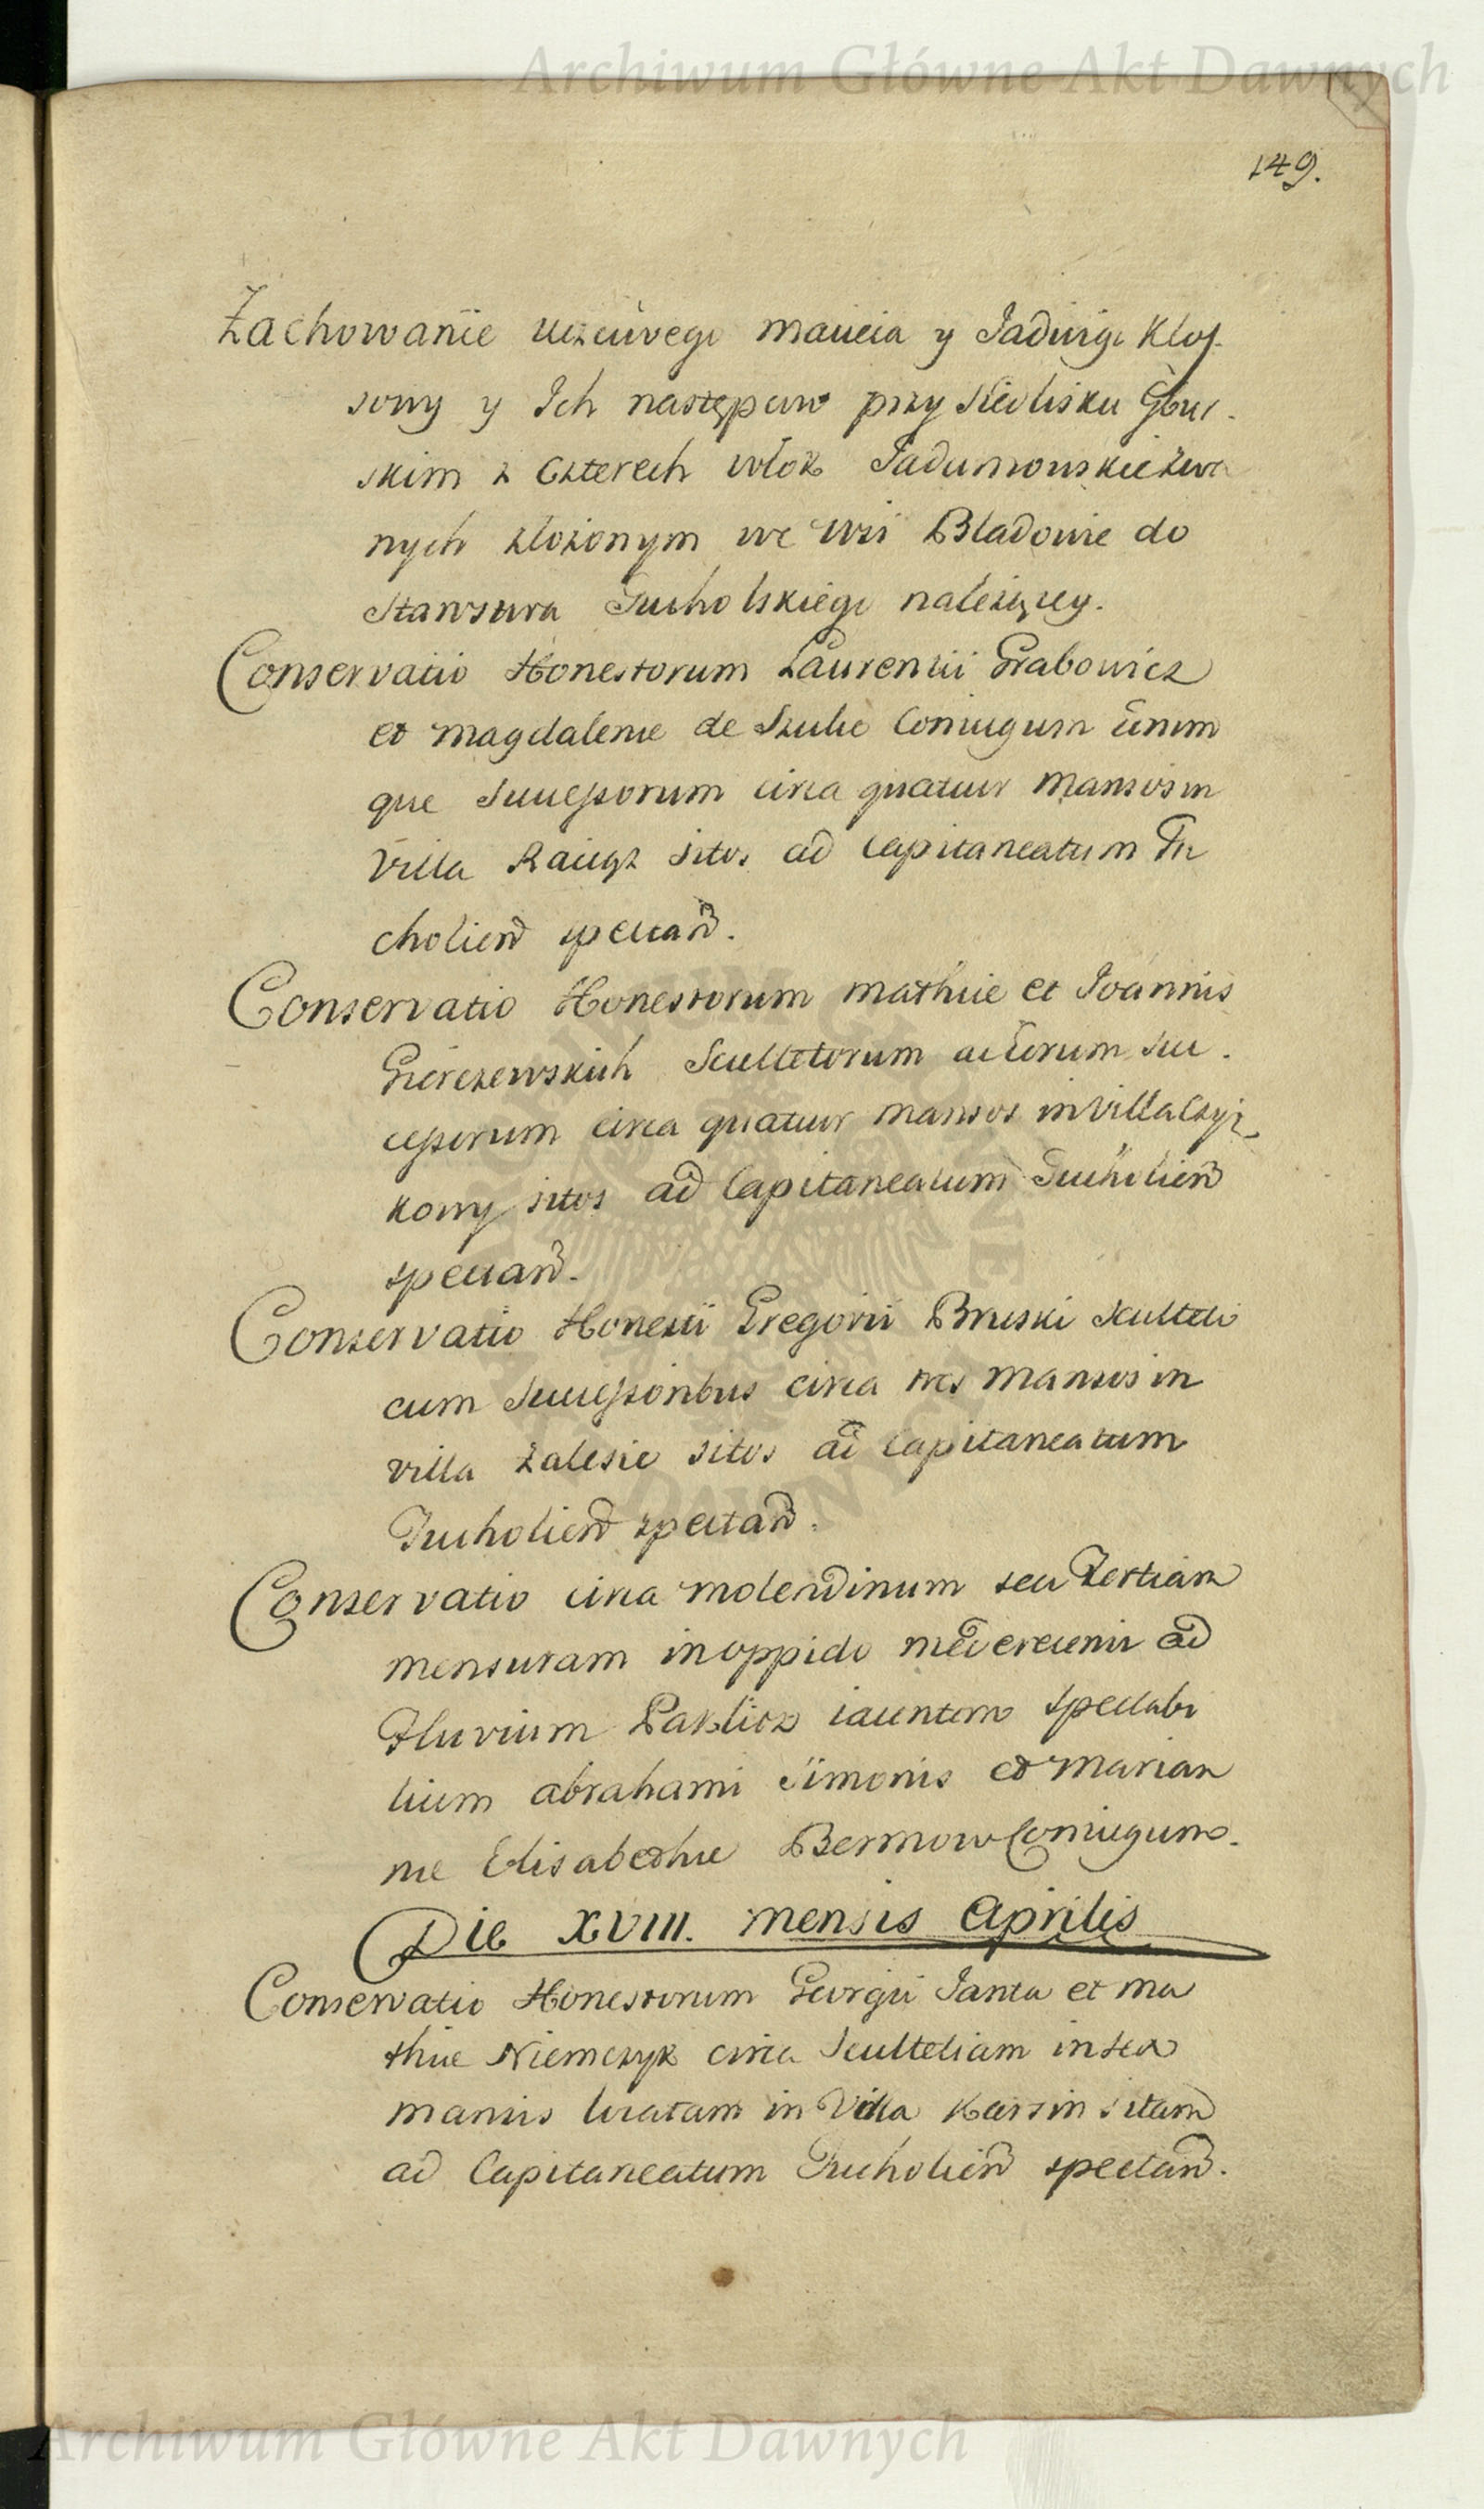 Archiwum Główne Akt Dawnych
149.
Zachowanie uczciwego Macieia y Jadwigi Klos-
sowy y Ich następcow przy Siedlisku Gbur-
skim z Czterech włok Jadamowskie zwa
nych złożonym we wsi Bladowie do
Starostwa Tucholskiego należącey.
Conservatio Honestorum Laurentii Grabowicz
et Magdalenæ de Szulic Coniugum eorum
que Successorum circa quatuor Mansos in
Villa Raciąz sitos ad Capitaneatum Tu
cholien spectan.
Conservatio Honestorum Mathiæ et Joannis
Gierszewskich Scultetorum ac eorum Suc-
cessorum circa quatuor mansos in Villa Czyc
kowy sitos ad Capitaneatum Tucholien
spectan.
Conservatio Honesti Gregorii Bruski Sculteti
cum Successoribus circa tres Mansos in
villa Zalesie sitos ad Capitaneatum
Tucholien spectan.
Conservatio circa molendinum seu Tertiam
mensuram in oppido ad
Fluvium iacentem Spectabi
lium Abrahami Simonis et Marian
næ Elisabethæ Bermow Coniugum.
Die XVIII. Mensis Aprilis
Conservatio Honestorum Georgii Janta et Ma
thiæ Niemczyk circa Scultetiam in sex
mansis locatam in Villa Karszin sitam
ad Capitaneatum Tucholien spectan.
Archiwum Główne Akt Dawnych